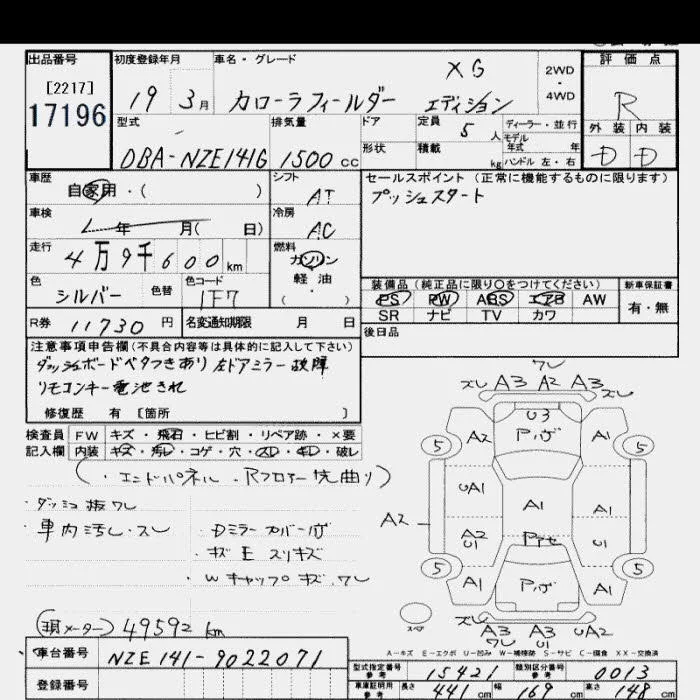 出品番号 初度登録年月 車名・グレード XG 2WD・4WD 評価点
[2217] 17196 19 3月 カローラフィールダー エディション R
型式 排気量 ドア 定員 5人 ディーラー・並行 外装 内装
形状 積載 kg モデル年式 年 ハンドル 左・右
DBA-NZE141G 1500cc D D
車歴 自家用・( ) シフト AT セールスポイント (正常に機能するものに限ります)
プッシュスタート
車検 年 月( 日) 冷房 AC
走行 4万9千600km 燃料 ガソリン 軽油 ( ・ )
色 シルバー 色替 色コード 1F7 装備品(純正品に限り○をつけてください) 新車保証書
PS PW ABS エアB AW 有・無
SR ナビ TV カワ
R券 11730円 名変通知期限 月 日 後日品
注意事項申告欄(不具合内容等は具体的に記入して下さい)
ダッシュボードベタつきあり 左ドアミラー故障
リモコンキー電池きれ
修復歴 有 [箇所 ]
検査員記入欄 FW キズ・飛石・ヒビ割・リペア跡・×要
内装 キズ・汚レ・コゲ・穴・スレ・ネジ・破レ
(・エンドパネル・Rフロアー先曲り)
・ダッシュ板ワレ
・車内汚レ・スレ ・Dミラーカバーハゲ
・キズE スリキズ
・Wキャップキズ、ワレ
ワレ
ズレ A3 A2 A3 ズレ
U3
Pハゲ
5 A2 A1 5
UA1 A1 A1
A2 A2 U1 U1
5 A1 Pハゲ A1 5
スペア ズレ A3 A3 UA2
ワレ U1
(現メーター) 49592km
A-キズ E-エクボ U-凹み W-補修跡 S-サビ C-腐食 XX-交換済
車台番号 NZE141-9022071 型式指定番号 参考 15421 類別区分番号 参考 0013
登録番号 車庫証明用 参考 長さ 441cm 幅 169cm 高さ 148cm